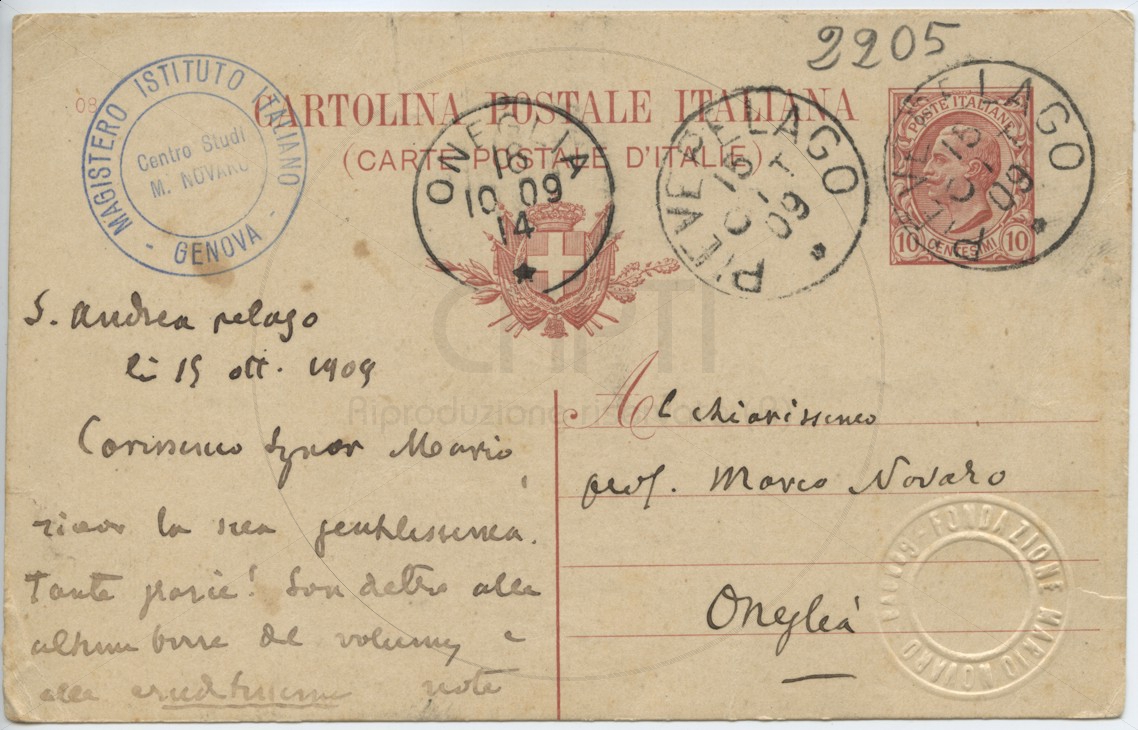 2205
08
CARTOLINA POSTALE ITALIANA
(CARTE POSTALE D'ITALIE)
MAGISTERO ISTITUTO ITALIANO
- GENOVA -
Centro Studi
M. NOVARO
ONEGLIA
16
10 09
14
PIEVEPELAGO
15
OTT
09
PIEVEPELAGO
15
OTT
09
POSTE ITALIANE
10 CENTESIMI 10
CAPTI
Riproduzione riservata
S. Andrea pelago
li 15 ott. 1909
Carissimo Signor Mario
ricevo la sua gentilissima.
Tante grazie! Son dietro alle
ultime bozze del volume, e
alle eruditissime note
Al chiarissimo
prof. Marco Novaro
Oneglia
FONDAZIONE MARIO NOVARO